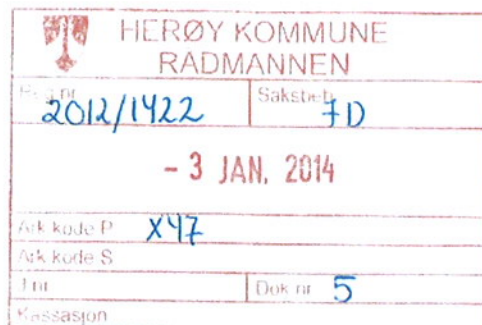 HERØY KOMMUNE
RADMANNEN
Reg.nr. Sakstieh
2012/1422 7D
- 3 JAN. 2014
Ark kode P X47
Ark kode S
J.nr. Dok nr 5
Kassasjon